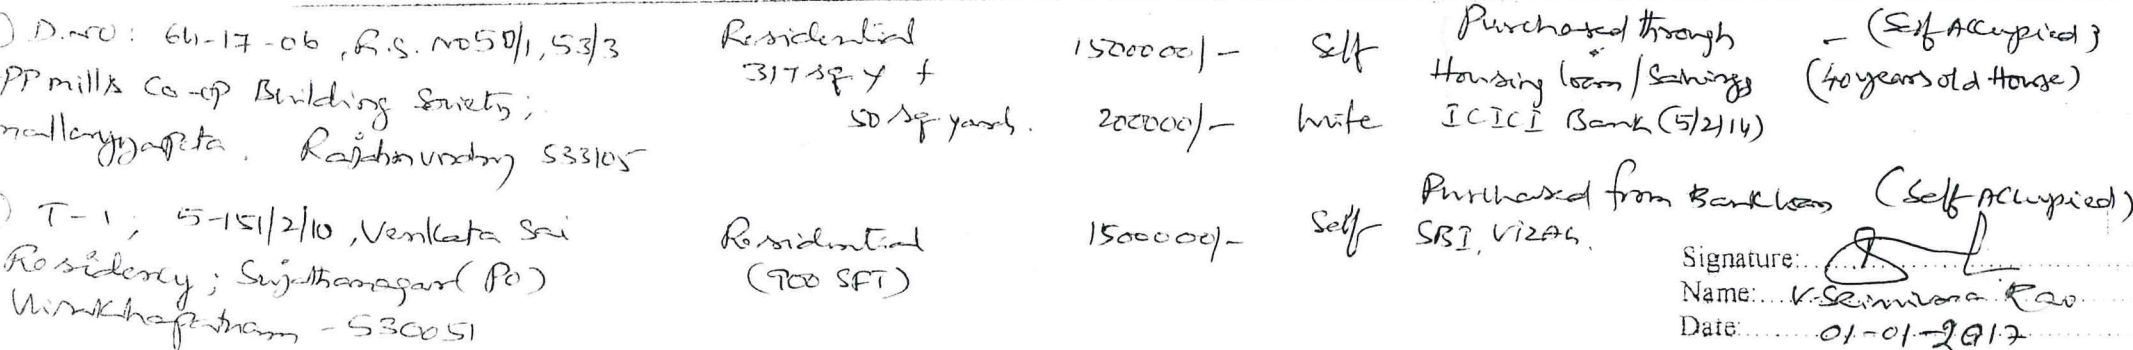 ) D.NO: 64-17-06, R.S. NO 50/1, 53/3
PP mills Co-op Building Society;
mallayyapeta, Rajahmundry 533105
Residential
317 sq. y +
50 sq yards.
1500000/-
200000/-
Self
Wife
Purchased through - (Self Accupied)
Housing loan/Savings (40 years old House)
ICICI Bank (5/2/14)
) T-1; 5-151/2/10, Venkata Sai
Residency; Sujathanagar (PO)
Visakhapatnam - 530051
Residential
(900 SFT)
1500000/-
Self
Purchased from Bank loan (Self Accupied)
SBI, VIZAG.
Signature:
Name: V. Srinivasa Rao
Date: 01-01-2017